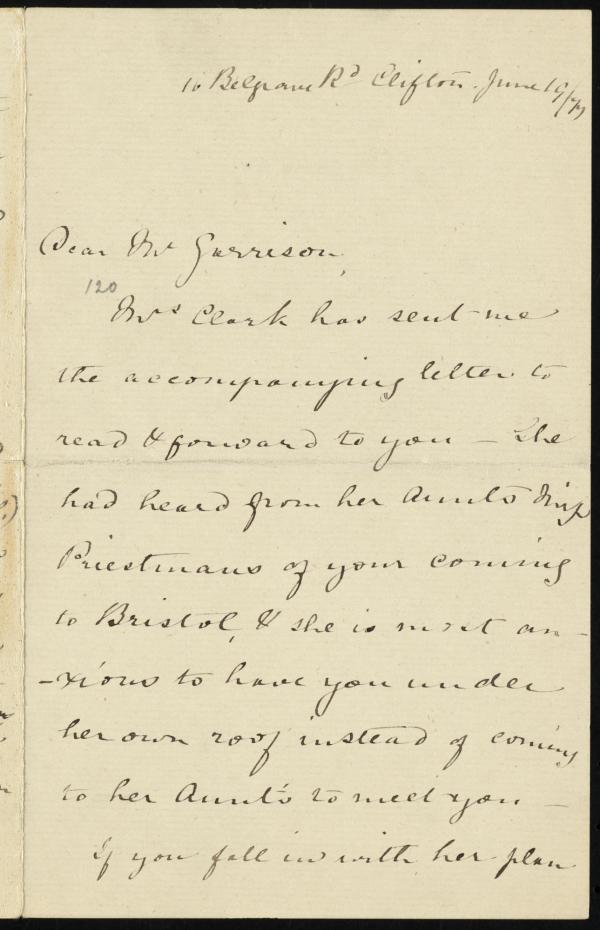 10 Belgrave Rd Clifton. June 19/77
Dear Mr Garrison,
120
Mrs Clark has sent me
the accompanying letter to
read & forward to you — She
had heard from her Aunts
Priestmans of your coming
to Bristol, & she is most an-
-xious to have you under
her own roof instead of coming
to her Aunt's to meet you —
If you fall in with her plan